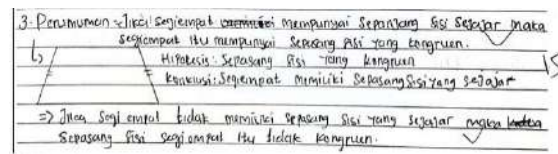 3. Perumuman : Jika segiempat mempunyai sepasang sisi sejajar maka
segiempat itu mempunyai sepasang sisi yang kongruen.
Hipotesis : sepasang sisi yang kongruen
Konklusi : segiempat memiliki sepasang sisi yang sejajar
=> Jika segi empat tidak memiliki sepasang sisi yang sejajar maka
sepasang sisi segiempat itu tidak kongruen.